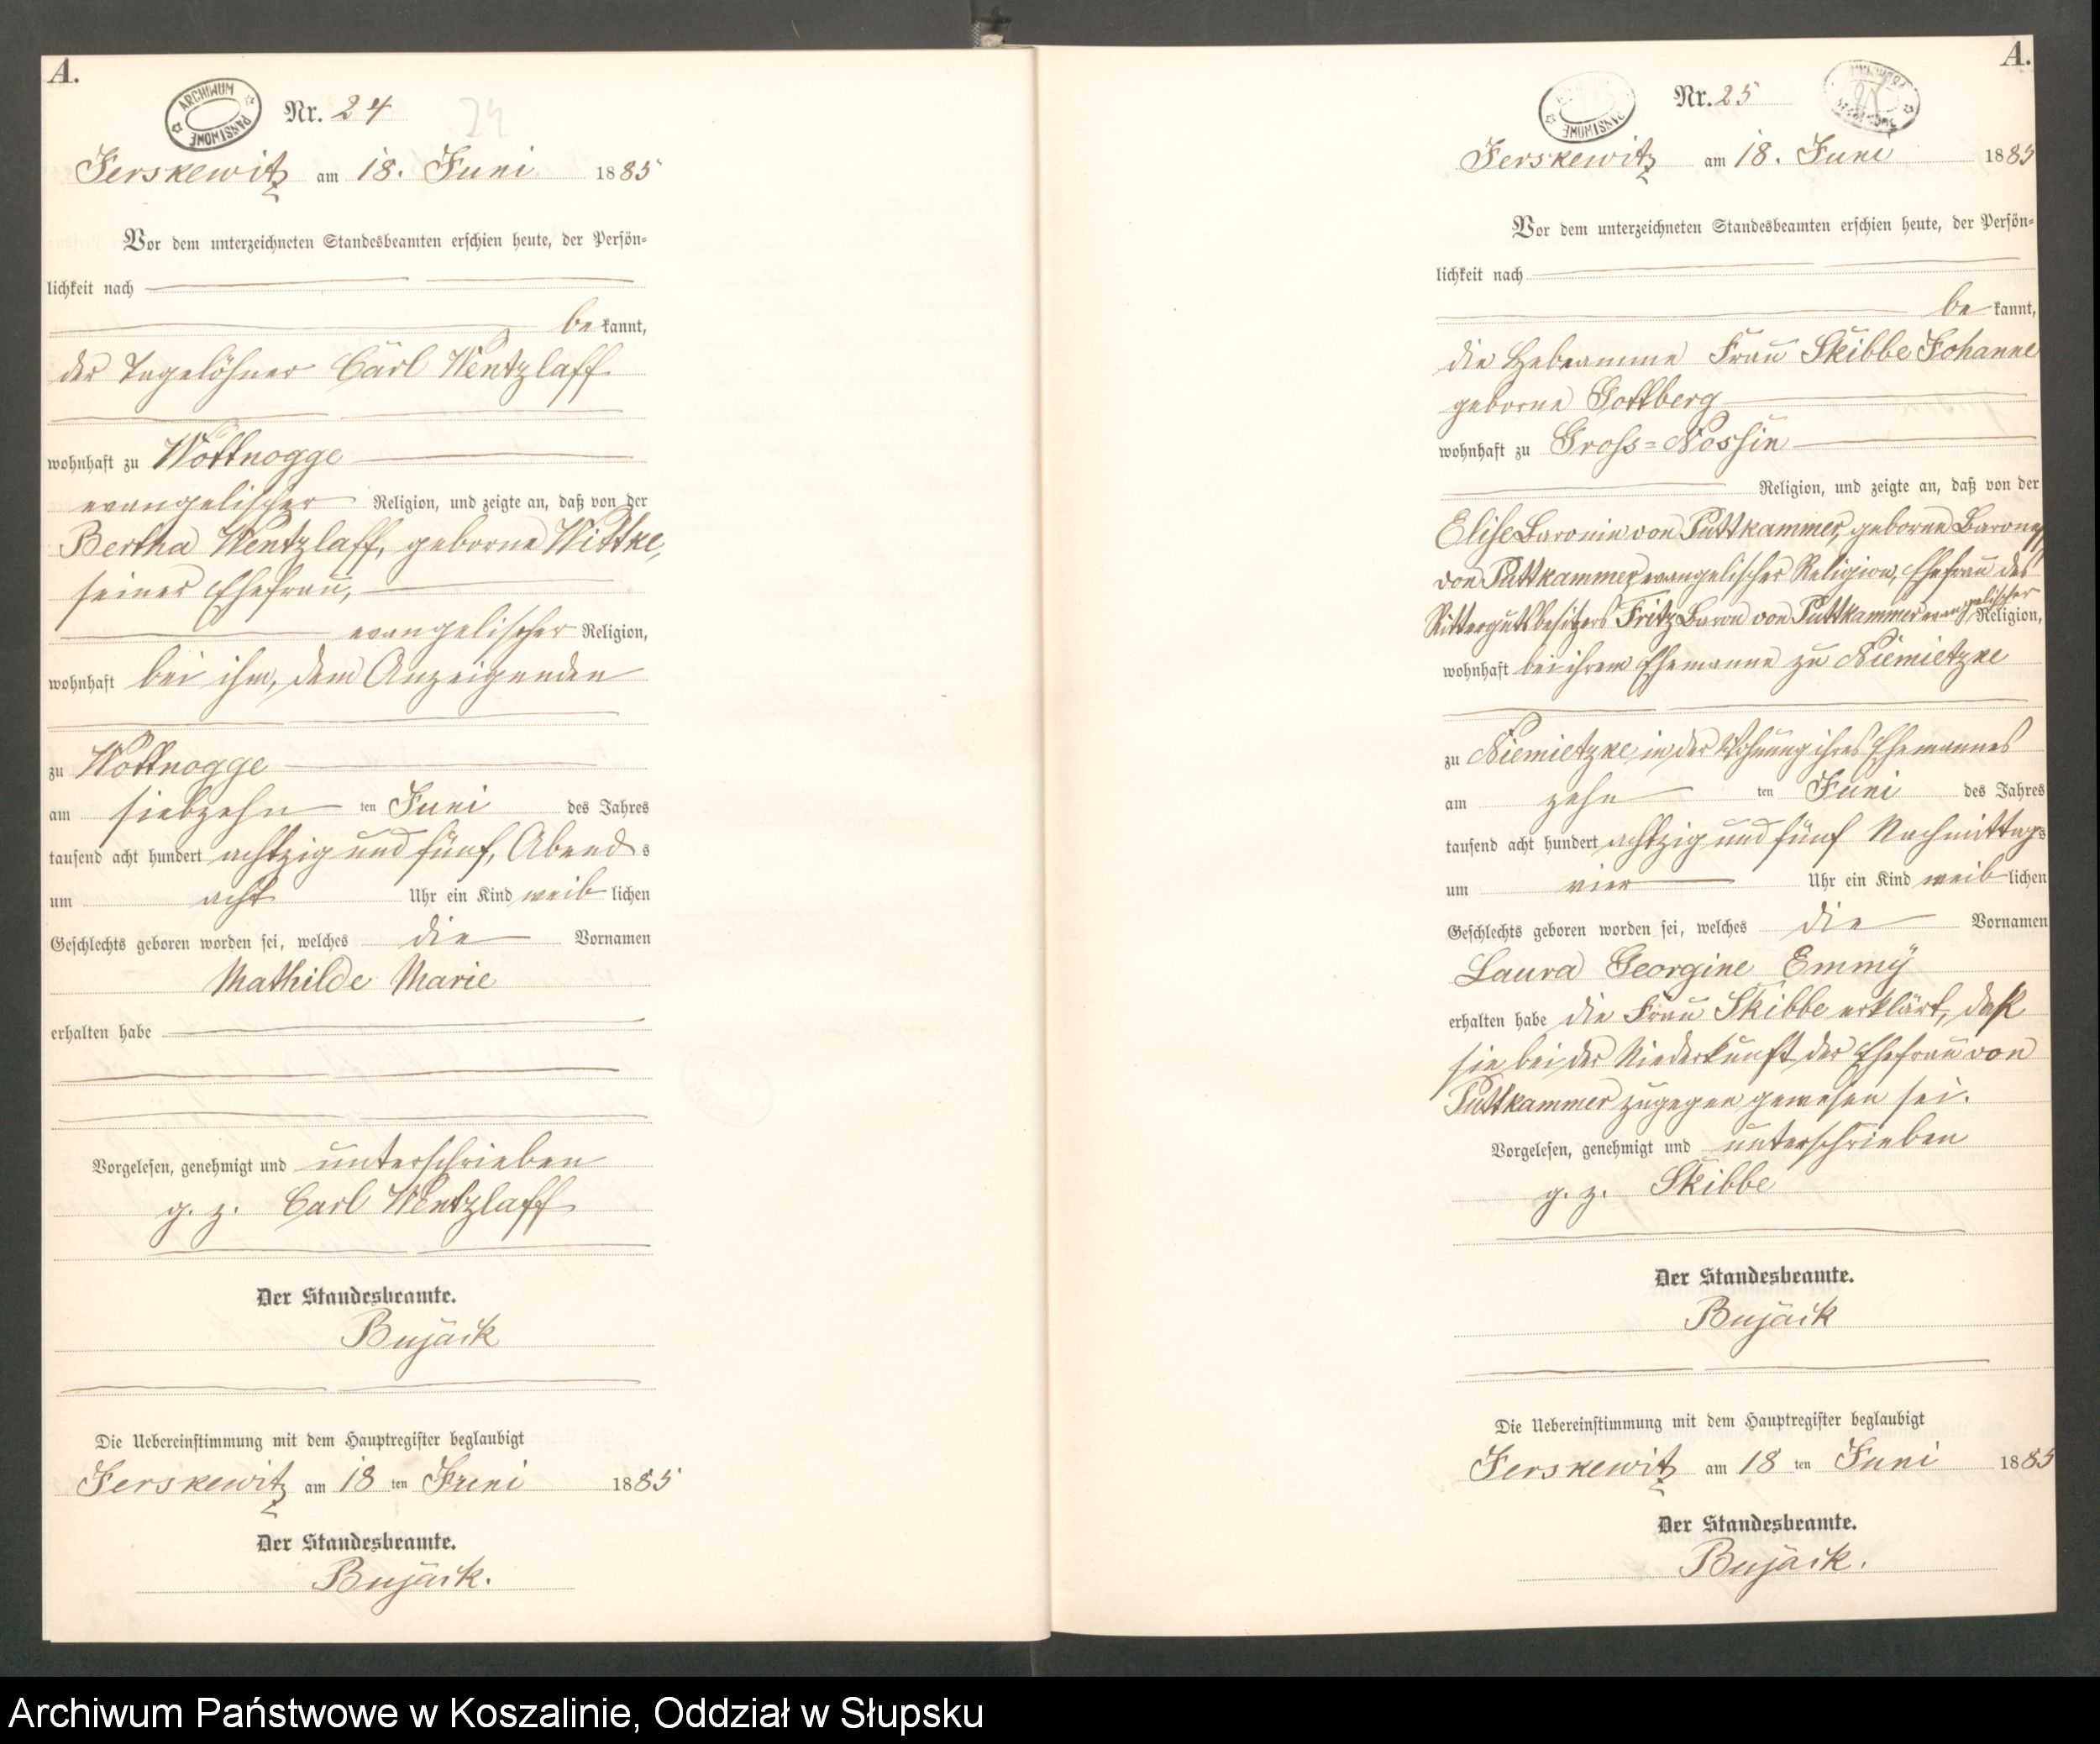 A.
ARCHIWUM PAŃSTWOWE
Nr. 24
24
Jerskewitz am 18. Juni 1885
Vor dem unterzeichneten Standesbeamten erschien heute, der Persön-
lichkeit nach
be kannt,
der Tagelöhner Carl Wentzlaff
wohnhaft zu Wottnogge
evangelischer Religion, und zeigte an, daß von der
Bertha Wentzlaff, geborne Wittke,
seiner Ehefrau,
evangelischer Religion,
wohnhaft bei ihm, dem Anzeigenden
zu Wottnogge
am siebzehn ten Juni des Jahres
tausend acht hundert achtzig und fünf, Abend s
um acht Uhr ein Kind weib lichen
Geschlechts geboren worden sei, welches die Vornamen
Mathilde Marie
erhalten habe
Vorgelesen, genehmigt und unterschrieben
g. z. Carl Wentzlaff
Der Standesbeamte.
Bujack
Die Uebereinstimmung mit dem Hauptregister beglaubigt
Jerskewitz am 18 ten Juni 1885
Der Standesbeamte.
Bujack.
A.
PAŃSTWOWE
Nr. 25
Jerskewitz am 18. Juni 1885
Vor dem unterzeichneten Standesbeamten erschien heute, der Persön-
lichkeit nach
be kannt,
die Hebeamme Frau Skibbe Johanne
geborne Gottberg
wohnhaft zu Gross=Nossin
Religion, und zeigte an, daß von der
Elise Baronin von Puttkammer, geborne Baroness
von Puttkammer evangelischer Religion, Ehefrau des
Rittergutsbesitzers Fritz Baron von Puttkammer evangelischer Religion,
wohnhaft bei ihrem Ehemanne zu Niemietzke
zu Niemietzke in der Wohnung ihres Ehemannes
am zehn ten Juni des Jahres
tausend acht hundert achtzig und fünf Nachmittag s
um vier Uhr ein Kind weib lichen
Geschlechts geboren worden sei, welches die Vornamen
Laura Georgine Emmy
erhalten habe die Frau Skibbe erklärt, daß
sie bei der Niederkunft der Ehefrau von
Puttkammer zugegen gewesen sei.
Vorgelesen, genehmigt und unterschrieben
g. z. Skibbe
Der Standesbeamte.
Bujack
Die Uebereinstimmung mit dem Hauptregister beglaubigt
Jerskewitz am 18 ten Juni 1885
Der Standesbeamte.
Bujack.
Archiwum Państwowe w Koszalinie, Oddział w Słupsku